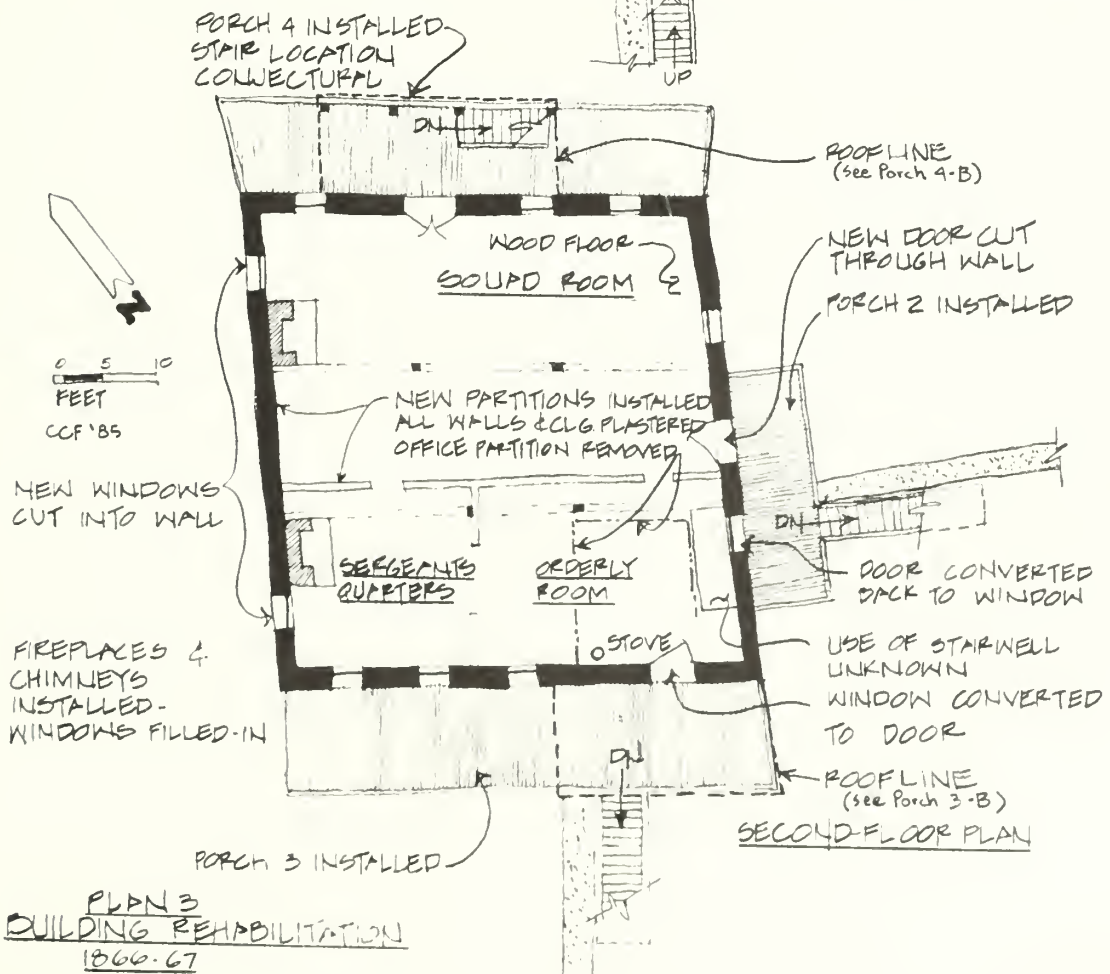 PORCH 4 INSTALLED
STAIR LOCATION
CONJECTURAL
UP
DN
ROOFLINE
(see Porch 4-B)
WOOD FLOOR
SQUAD ROOM
NEW DOOR CUT
THROUGH WALL
PORCH 2 INSTALLED
N
0 5 10
FEET
CCF '85
NEW PARTITIONS INSTALLED
ALL WALLS & CLG. PLASTERED
OFFICE PARTITION REMOVED
NEW WINDOWS
CUT INTO WALL
DN
SERGEANTS
QUARTERS
ORDERLY
ROOM
DOOR CONVERTED
BACK TO WINDOW
STOVE
USE OF STAIRWELL
UNKNOWN
FIREPLACES &
CHIMNEYS
INSTALLED-
WINDOWS FILLED-IN
WINDOW CONVERTED
TO DOOR
DN
ROOFLINE
(see Porch 3-B)
SECOND-FLOOR PLAN
PORCH 3 INSTALLED
PLAN 3
BUILDING REHABILITATION
1866-67